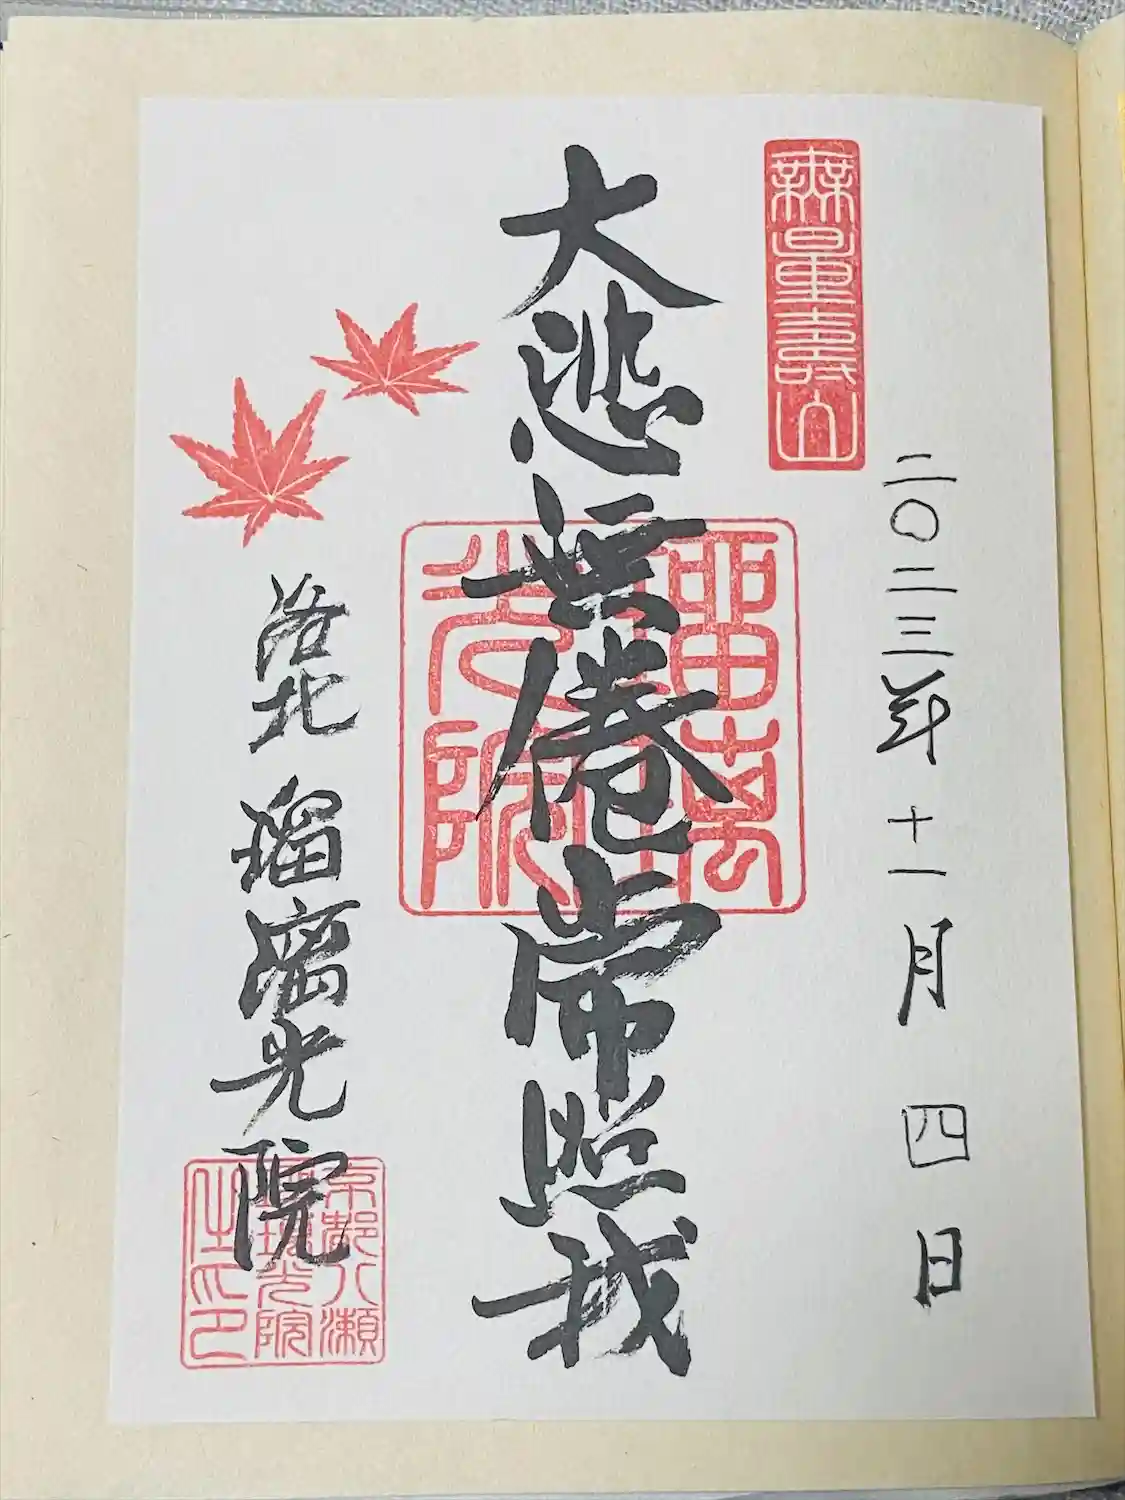 無量壽山
二〇二三年 十一月 四日
大悲無倦常照我
瑠璃光院
洛北 瑠璃光院
京都八瀬
瑠璃光院
之印